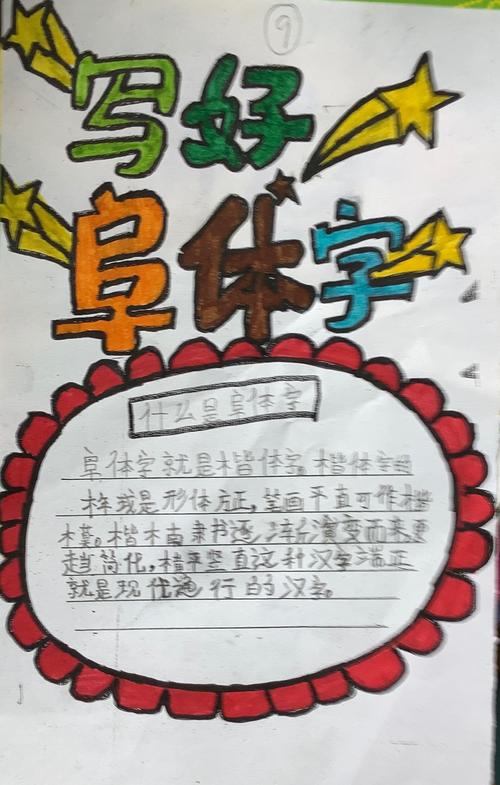 9
写好
阜体字
什么是阜体字
阜体字就是楷体字。楷体字
是形体方正,笔画平直可作楷
模。楷木由隶书逐渐演变而来更
趋简化,横平竖直这种汉字端正
就是现代通行的汉字。